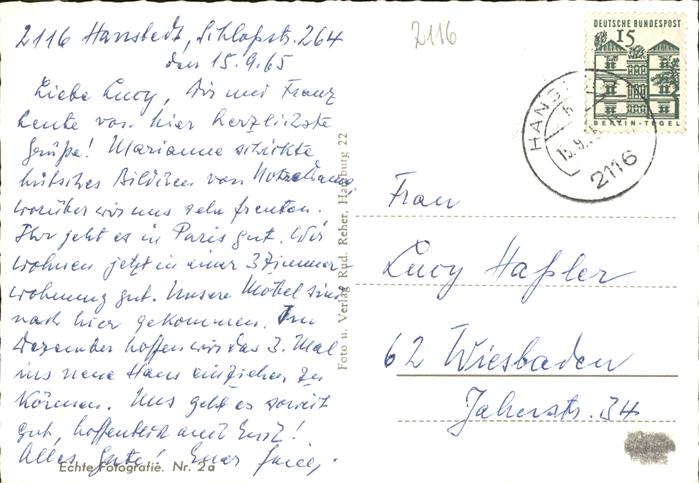 2116 Hanstedt, Schloßstr. 264
den 15.9.65
Liebe Lucy, Dir und Franz
heute von hier herzlichste
Grüße! Marianne schickte
hübsches Bildchen von Notre Dame,
worüber wir uns sehr freuten.
Ihr geht es in Paris gut. Wir
wohnen jetzt in einer 3 Zimmer
wohnung gut. Unsere Möbel sind
nach hier gekommen. Im
Dezember hoffen wir das 3. Mal
ins neue Haus einziehen zu
können. Uns geht es soweit
gut, hoffentlich auch Euch!
Alles Gute! Euer
Echte Fotografie. Nr. 2a
Foto u. Verlag Rud. Reher, Hamburg 22
2116
DEUTSCHE BUNDESPOST
15
BERLIN-TEGEL
2116
Frau
Lucy Haßler
62 Wiesbaden
Jahnstr. 34